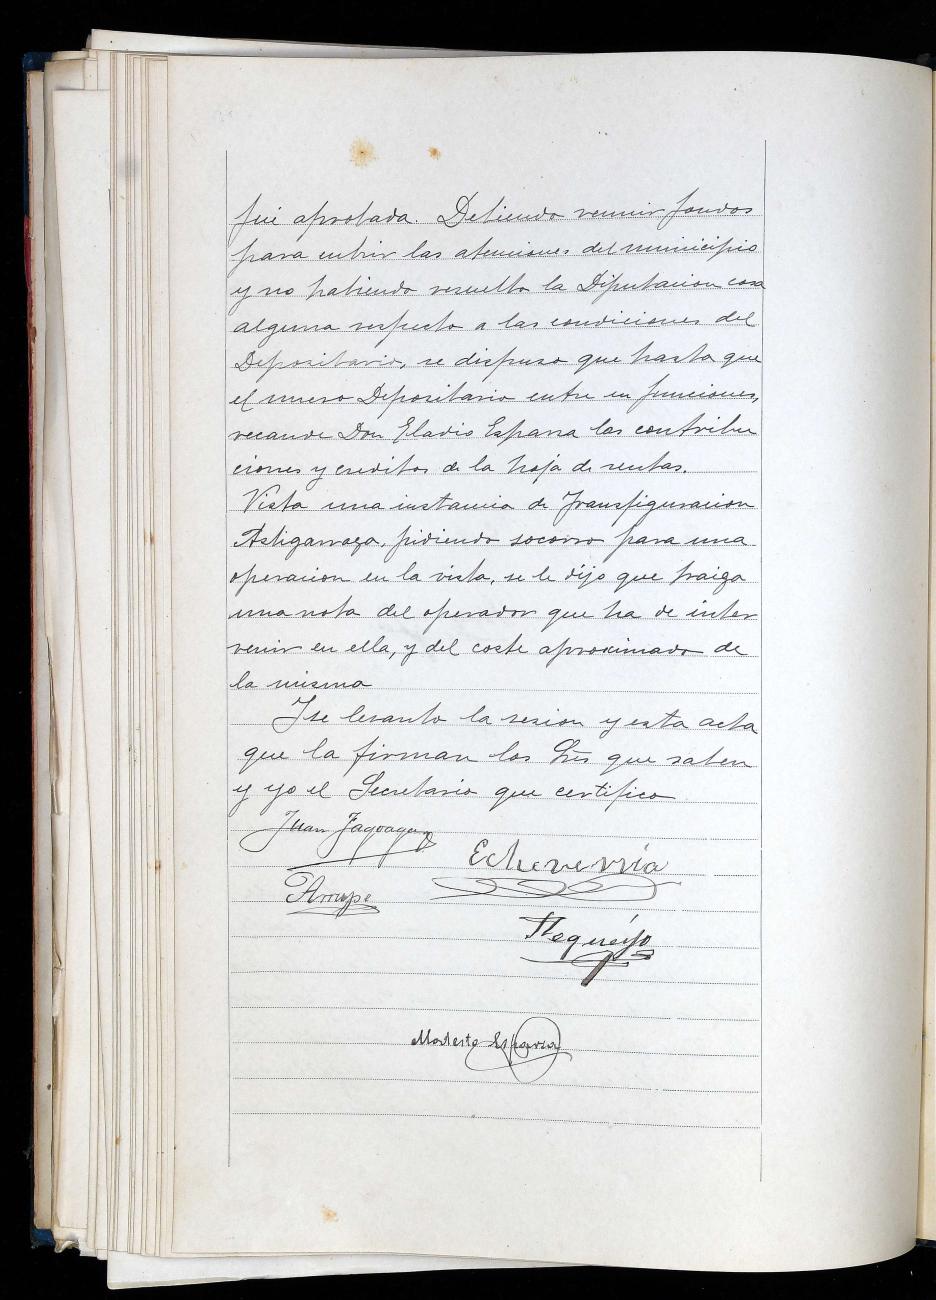 fué aprobada. Debiendo reunir fondos
para cubrir las atenciones del municipio
y no habiendo resuelto la Diputacion cosa
alguna respecto a las condiciones del
Depositario, se dispuso que hasta que
el nuevo Depositario entre en funciones,
recaude Don Eladio Esparza las contribu
ciones y creditos de la hoja de rentas.
Vista una instancia de Transfiguracion
Astigarraga, pidiendo socorro para una
operacion en la vista, se le dijo que traiga
una nota del operador que ha de inter
venir en ella, y del coste aproximado de
la misma
Y se levanto la sesion y esta acta
que la firman los Sres que saben
y yo el Secretario que certifico
Juan Jagoaga
Echeverria
Arrupe
Modesto Esparza